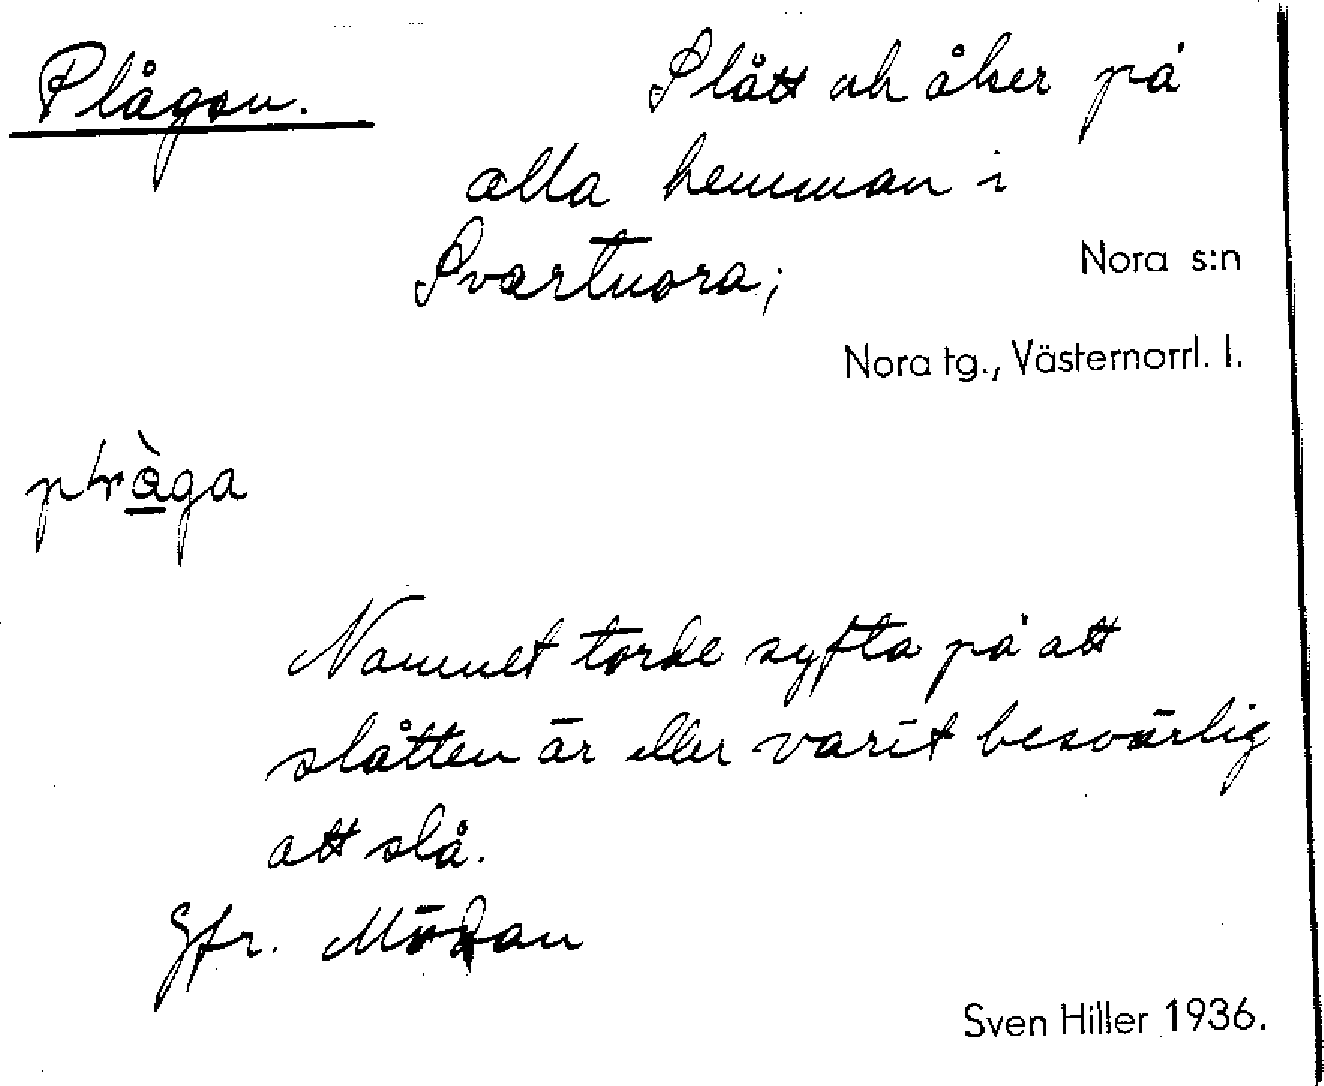 Plågan. Slått och åker på
alla hemman i
Svartnora;
Nora s:n
Nora tg., Västernorrl. l.
plråga
Namnet torde syfta på att
slåtten är eller varit besvärlig
att slå.
Jfr. Mödan
Sven Hiller 1936.